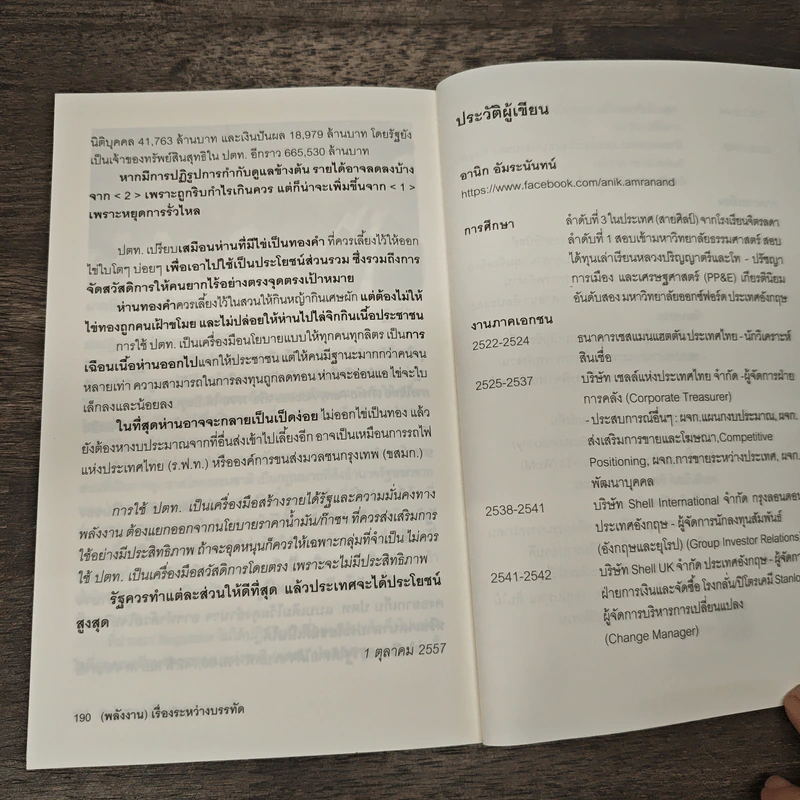 นิติบุคคล 41,763 ล้านบาท และเงินปันผล 18,979 ล้านบาท โดยรัฐยัง
เป็นเจ้าของทรัพย์สินสุทธิใน ปตท. อีกราว 665,530 ล้านบาท
หากมีการปฏิรูปการกำกับดูแลข้างต้น รายได้อาจลดลงบ้าง
จาก < 2 > เพราะถูกริบกำไรเกินควร แต่ก็น่าจะเพิ่มขึ้นจาก < 1 >
เพราะหยุดการรั่วไหล
ปตท. เปรียบเสมือนห่านที่มีไข่เป็นทองคำ ที่ควรเลี้ยงไว้ให้ออก
ไข่ใบโตๆ บ่อยๆ เพื่อเอาไปใช้เป็นประโยชน์ส่วนรวม ซึ่งรวมถึงการ
จัดสวัสดิการให้คนยากไร้อย่างตรงจุดตรงเป้าหมาย
ห่านทองคำควรเลี้ยงไว้ในสวนให้กินหญ้ากินเศษผัก แต่ต้องไม่ให้
ไข่ทองถูกคนเฝ้าขโมย และไม่ปล่อยให้ห่านไปไล่จิกกินเนื้อประชาชน
การใช้ ปตท. เป็นเครื่องมือนโยบายแบบให้ทุกคนทุกลิตร เป็นการ
เฉือนเนื้อห่านออกไปแจกให้ประชาชน แต่ให้คนมีฐานะมากกว่าคนจน
หลายเท่า ความสามารถในการลงทุนถูกลดทอน ห่านจะอ่อนแอ ไข่จะใบ
เล็กลงและน้อยลง
ในที่สุดห่านอาจจะกลายเป็นเป็ดง่อย ไม่ออกไข่เป็นทอง แล้ว
ยังต้องหางบประมาณจากที่อื่นส่งเข้าไปเลี้ยงอีก อาจเป็นเหมือนการรถไฟ
แห่งประเทศไทย (ร.ฟ.ท.) หรือองค์การขนส่งมวลชนกรุงเทพ (ขสมก.)
การใช้ ปตท. เป็นเครื่องมือสร้างรายได้รัฐและความมั่นคงทาง
พลังงาน ต้องแยกออกจากนโยบายราคาน้ำมัน/ก๊าซฯ ที่ควรส่งเสริมการ
ใช้อย่างมีประสิทธิภาพ ถ้าจะอุดหนุนก็ควรให้เฉพาะกลุ่มที่จำเป็น ไม่ควร
ใช้ ปตท. เป็นเครื่องมือสวัสดิการโดยตรง เพราะจะไม่มีประสิทธิภาพ
รัฐควรทำแต่ละส่วนให้ดีที่สุด แล้วประเทศจะได้ประโยชน์
สูงสุด
1 ตุลาคม 2557
190 (พลังงาน) เรื่องระหว่างบรรทัด
ประวัติผู้เขียน
อานิก อัมระนันทน์
https://www.facebook.com/anik.amranand
การศึกษา ลำดับที่ 3 ในประเทศ (สายศิลป์) จากโรงเรียนจิตรลดา
ลำดับที่ 1 สอบเข้ามหาวิทยาลัยธรรมศาสตร์ สอบ
ได้ทุนเล่าเรียนหลวงปริญญาตรีและโท - ปรัชญา
การเมือง และเศรษฐศาสตร์ (PP&E) เกียรตินิยม
อันดับสอง มหาวิทยาลัยออกซ์ฟอร์ด ประเทศอังกฤษ
งานภาคเอกชน
2522-2524 ธนาคารเชสแมนแฮตตัน ประเทศไทย - นักวิเคราะห์
สินเชื่อ
2525-2537 บริษัท เชลล์แห่งประเทศไทย จำกัด -ผู้จัดการฝ่าย
การคลัง (Corporate Treasurer)
- ประสบการณ์อื่นๆ : ผจก.แผนกงบประมาณ, ผจก.
ส่งเสริมการขายและโฆษณา,Competitive
Positioning, ผจก.การขายระหว่างประเทศ, ผจก.
พัฒนาบุคคล
2538-2541 บริษัท Shell International จำกัด กรุงลอนดอน
ประเทศอังกฤษ - ผู้จัดการนักลงทุนสัมพันธ์
(อังกฤษและยุโรป) (Group Investor Relations)
2541-2542 บริษัท Shell UK จำกัด ประเทศอังกฤษ- ผู้จัดการ
ฝ่ายการเงินและจัดซื้อ โรงกลั่น/ปิโตรเคมี
ผู้จัดการบริหารการเปลี่ยนแปลง
(Change Manager)